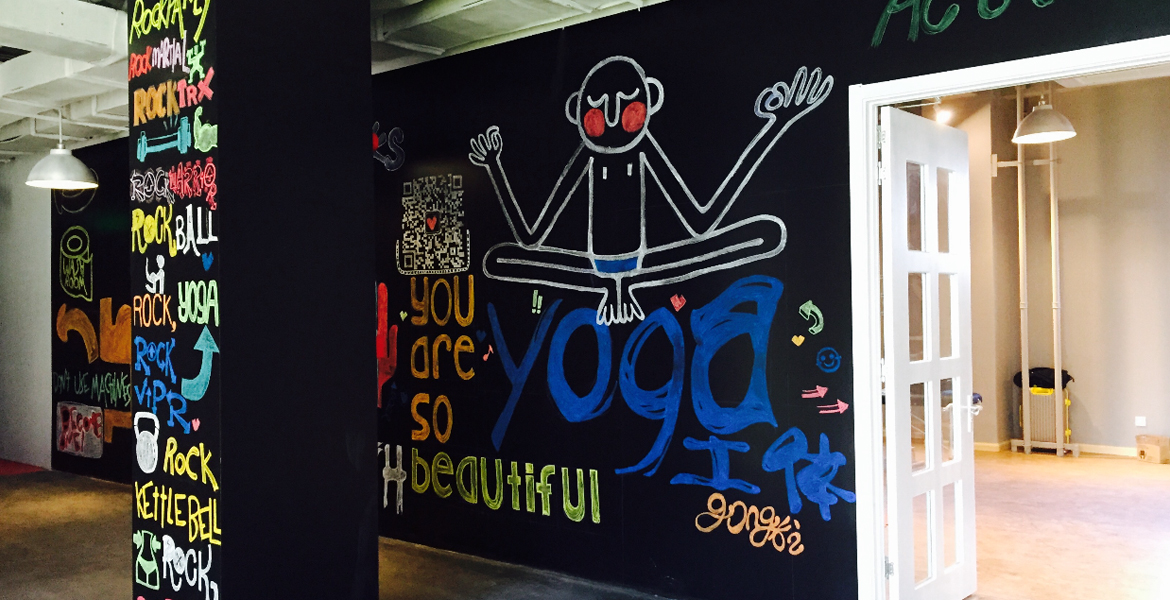 WASH
ROOM
DON'T USE MACHINES
ROCKPARTY
ROCK MARTIAL
ROCK TRX
ROCK
ROCK BALL
ROCK,
YOGA
ROCK
ViPR
ROCK
KETTLEBELL
ROCK,
YOU
are
SO
beautiful
!!
yoga
工体
gongti